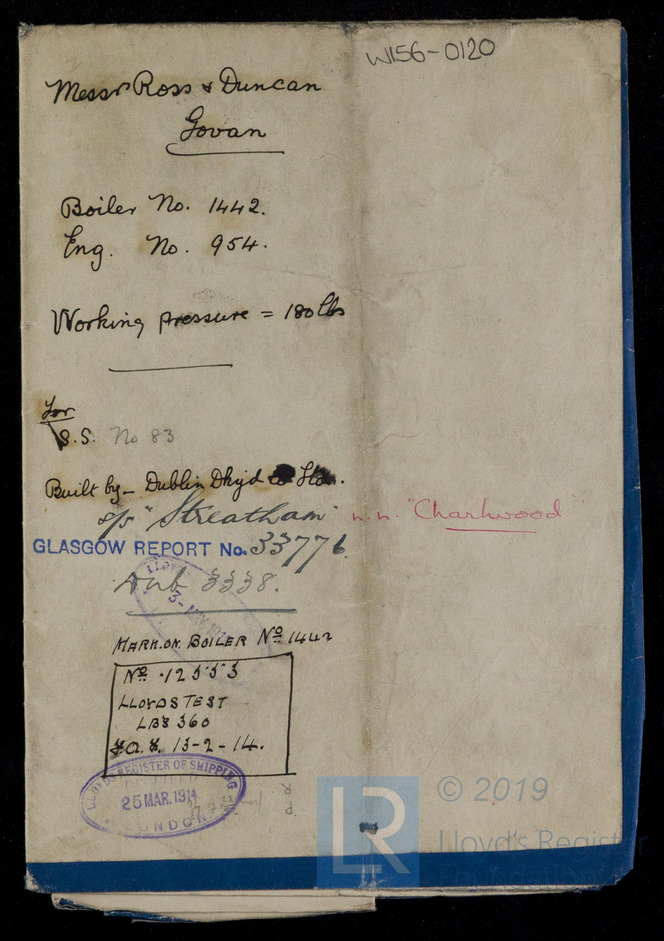 W156-0120
Messrs Ross & Duncan
Govan
Boiler No. 1442.
Eng. No. 954.
Working pressure = 180 lbs
For
S.S. No 83
Built by - Dublin Dkyd
S/S "Streatham" n.n. "Charlwood"
GLASGOW REPORT No. 33776
Dub 3338.
MARK.ON. BOILER No 1442
No. 12555
LLOYDS TEST
LBS 360
13-2-14.
LLOYD'S REGISTER OF SHIPPING
25 MAR. 1914
LONDON
LR
© 2019
Lloyd's Regist
Foundation